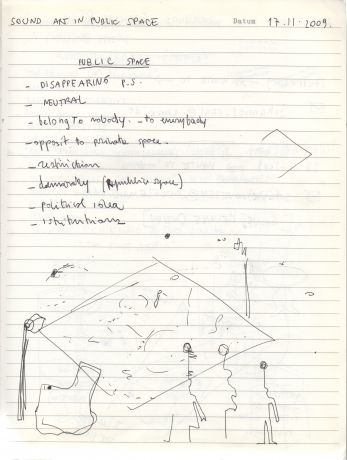 SOUND ART IN PUBLIC SPACE Datum 17.11.2009.
PUBLIC SPACE
- DISAPPEARING P.S.
- NEUTRAL
- belong to nobody. - to everybody
- opposit to private space.
- restriction
- democratty (Republic space)
- political idea
- istitutions